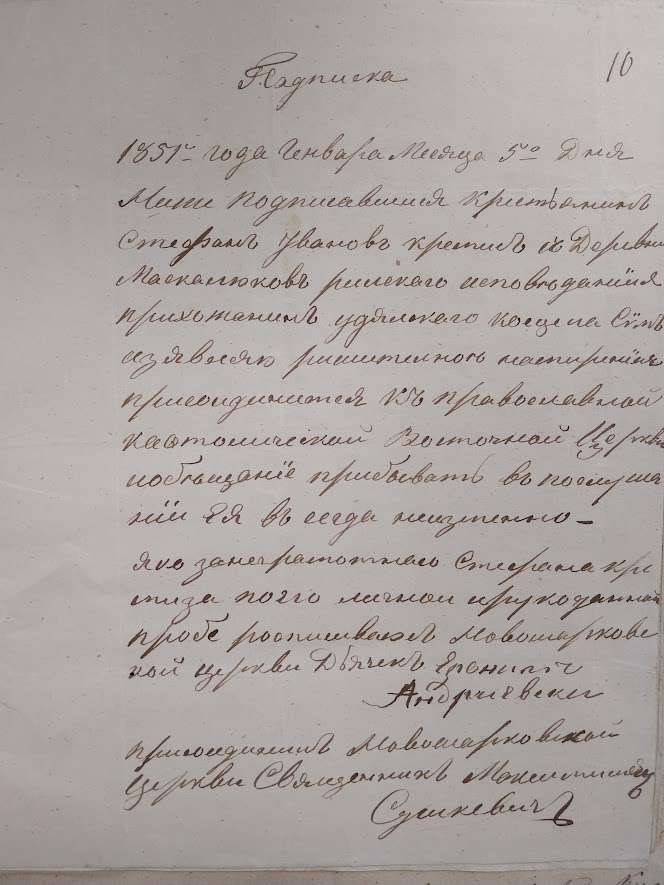 Подписка
10
1851го года Генвара Месяца 5го Дня
Мыни подписавшися крестьянинъ
Стефанъ Ивановъ из Деревни
римскаго исповеданїя
прихожанинъ костела Симъ
изявляю решителного намеренїя
присоединится къ православной
кафтолической Восточной Церкви
иобещанїе прибывать въ послуша
нїи Ея въ сегда неизменно –
яко занеграмотнаго Стефана
поего личной ирукоданной
прозбе росписывался Новошарковс
кой церкви Дьячекъ
Андриевски
присоединилъ Новошарковской
Церкви Священникъ
Сушкевичъ